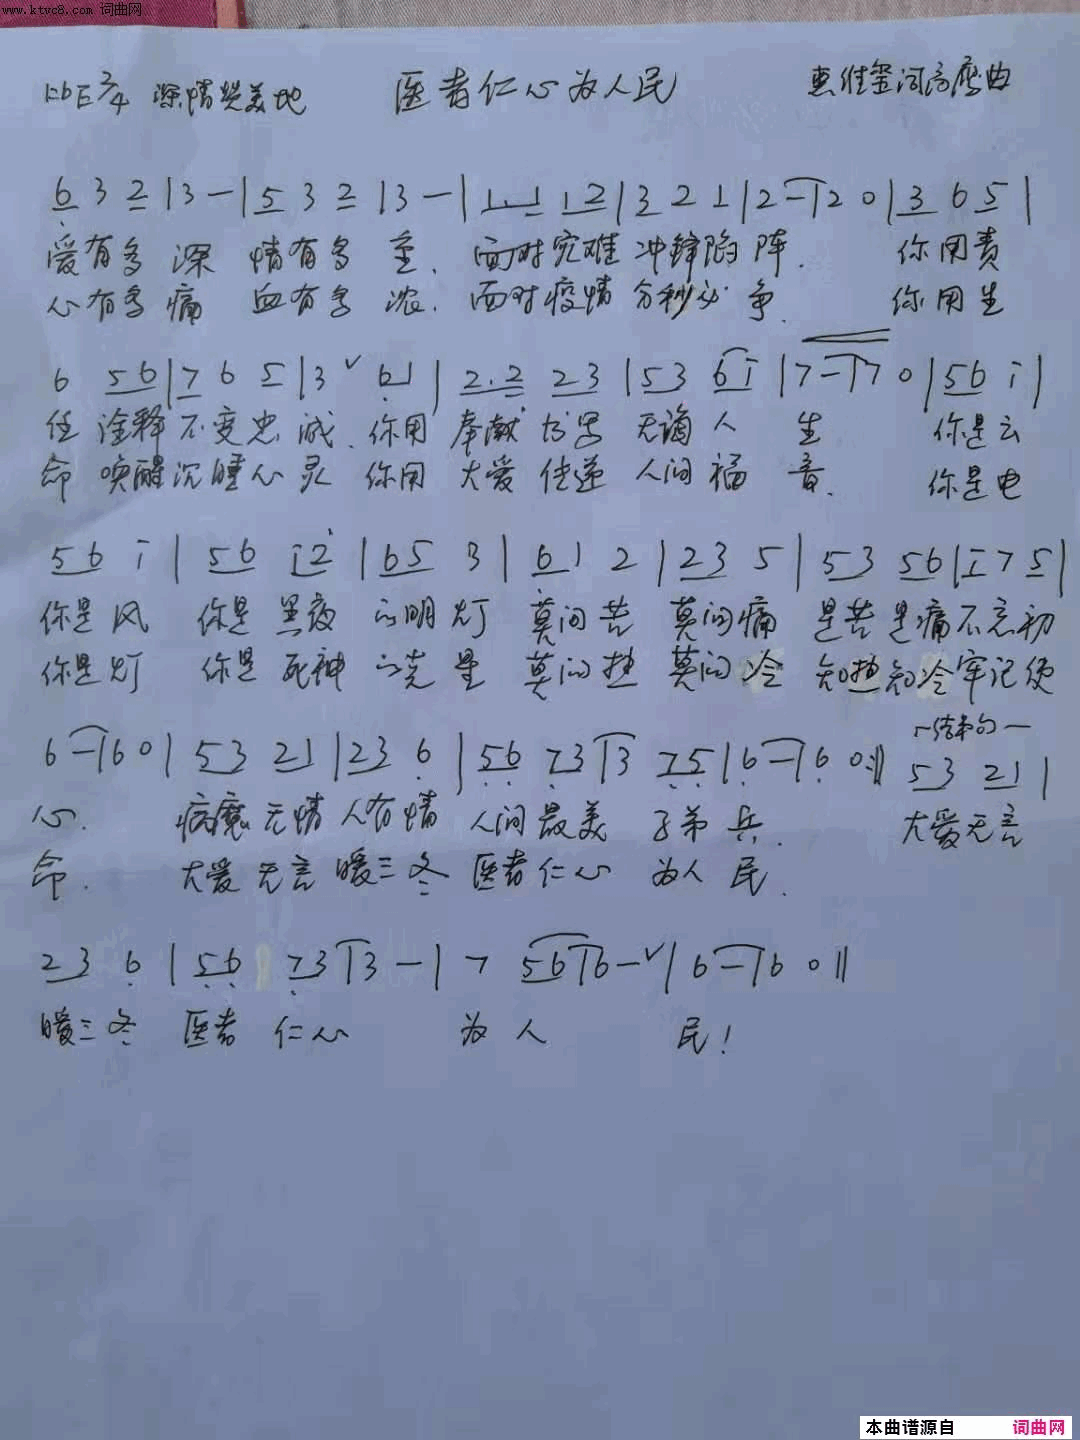 www.ktvc8.com 词曲网
1=bE 2/4 深情赞美地 医者仁心为人民 惠维玺词 曲
6 3 2 | 3 - | 5 3 2 | 3 - | 1. 1 1 2 | 3 2 1 | 2 - | 2 0 | 3 6 5 |
爱有多 深 情有多 至. 面对灾难 冲锋陷 阵. 你用责
心有多 痛 血有多 浓. 面对疫情 分秒必 争. 你用生
6 5 6 | 7 6 5 | 3 ˅ 6 1 | 2. 2 2 3 | 5 3 6 i | 7 - | 7 0 | 5 6 i |
任 诠释 不变忠 诚. 你用 奉献 书写 无满 人 生 你是云
命 唤醒 沉睡心 灵 你用 大爱 传递 人间 福 音. 你是电
5 6 i | 5 6 i 2 | 6 5 3 | 6 1 2 | 2 3 5 | 5 3 5 6 | i 7 5 |
你是 风 你是 黑夜 的明 灯 莫问 苦 莫问痛 是苦 是痛 不忘初
你是 灯 你是 死神 的克 星 莫问 热 莫问 冷 知热知冷 牢记使
6 - | 6 0 | 5 3 2 1 | 2 3 6 | 5 6 7 3 | 3 7 5 | 6 - | 6 0 :||
结束句
5 3 2 1 |
心. 病魔 无情 人有情 人间 最美 子弟 兵. 大爱无言
命. 大爱 无言 暖三冬 医者 仁心 为人 民.
2 3 6 | 5 6 7 3 | 3 - | 7 5 6 | 6 - ˅ | 6 - | 6 0 ||
暖三冬 医者 仁心 为 人 民!
本曲谱源自 词曲网